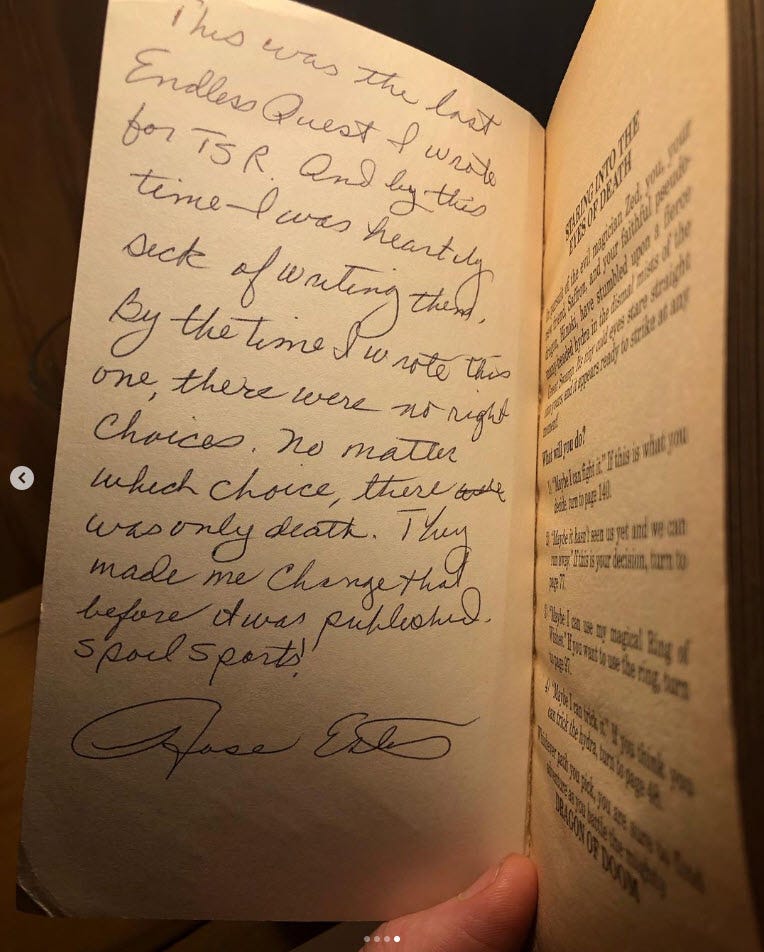 This was the last
Endless Quest I wrote
for TSR. And by this
time—I was heartily
sick of writing them.
By the time I wrote this
one, there were no right
choices. No matter
which choice, there
was only death. They
made me change that
before it was published.
Spoil Sports!
Rose Estes
STARING INTO THE
EYES OF DEATH
pursuit of the evil magician Zed, you, your
new friend, Saffron, and your faithful pseudo-
dragon, have stumbled upon a fierce
many-headed hydra in the dismal mists of the
Great Swamp. Its icy red eyes stare straight
into yours, and it appears ready to strike at any
moment!
What will you do?
"Maybe I can fight it." If this is what you
decide, turn to page 140.
"Maybe it hasn't seen us yet and we can
run away." If this is your decision, turn to
page 77.
"Maybe I can use my magical Ring of
Wishes." If you want to use the ring, turn
to page
"Maybe I can trick it." If you think you
can trick the hydra, turn to page
Whichever path you pick, you are sure to find
adventure as you battle the mighty
DRAGON OF DOOM